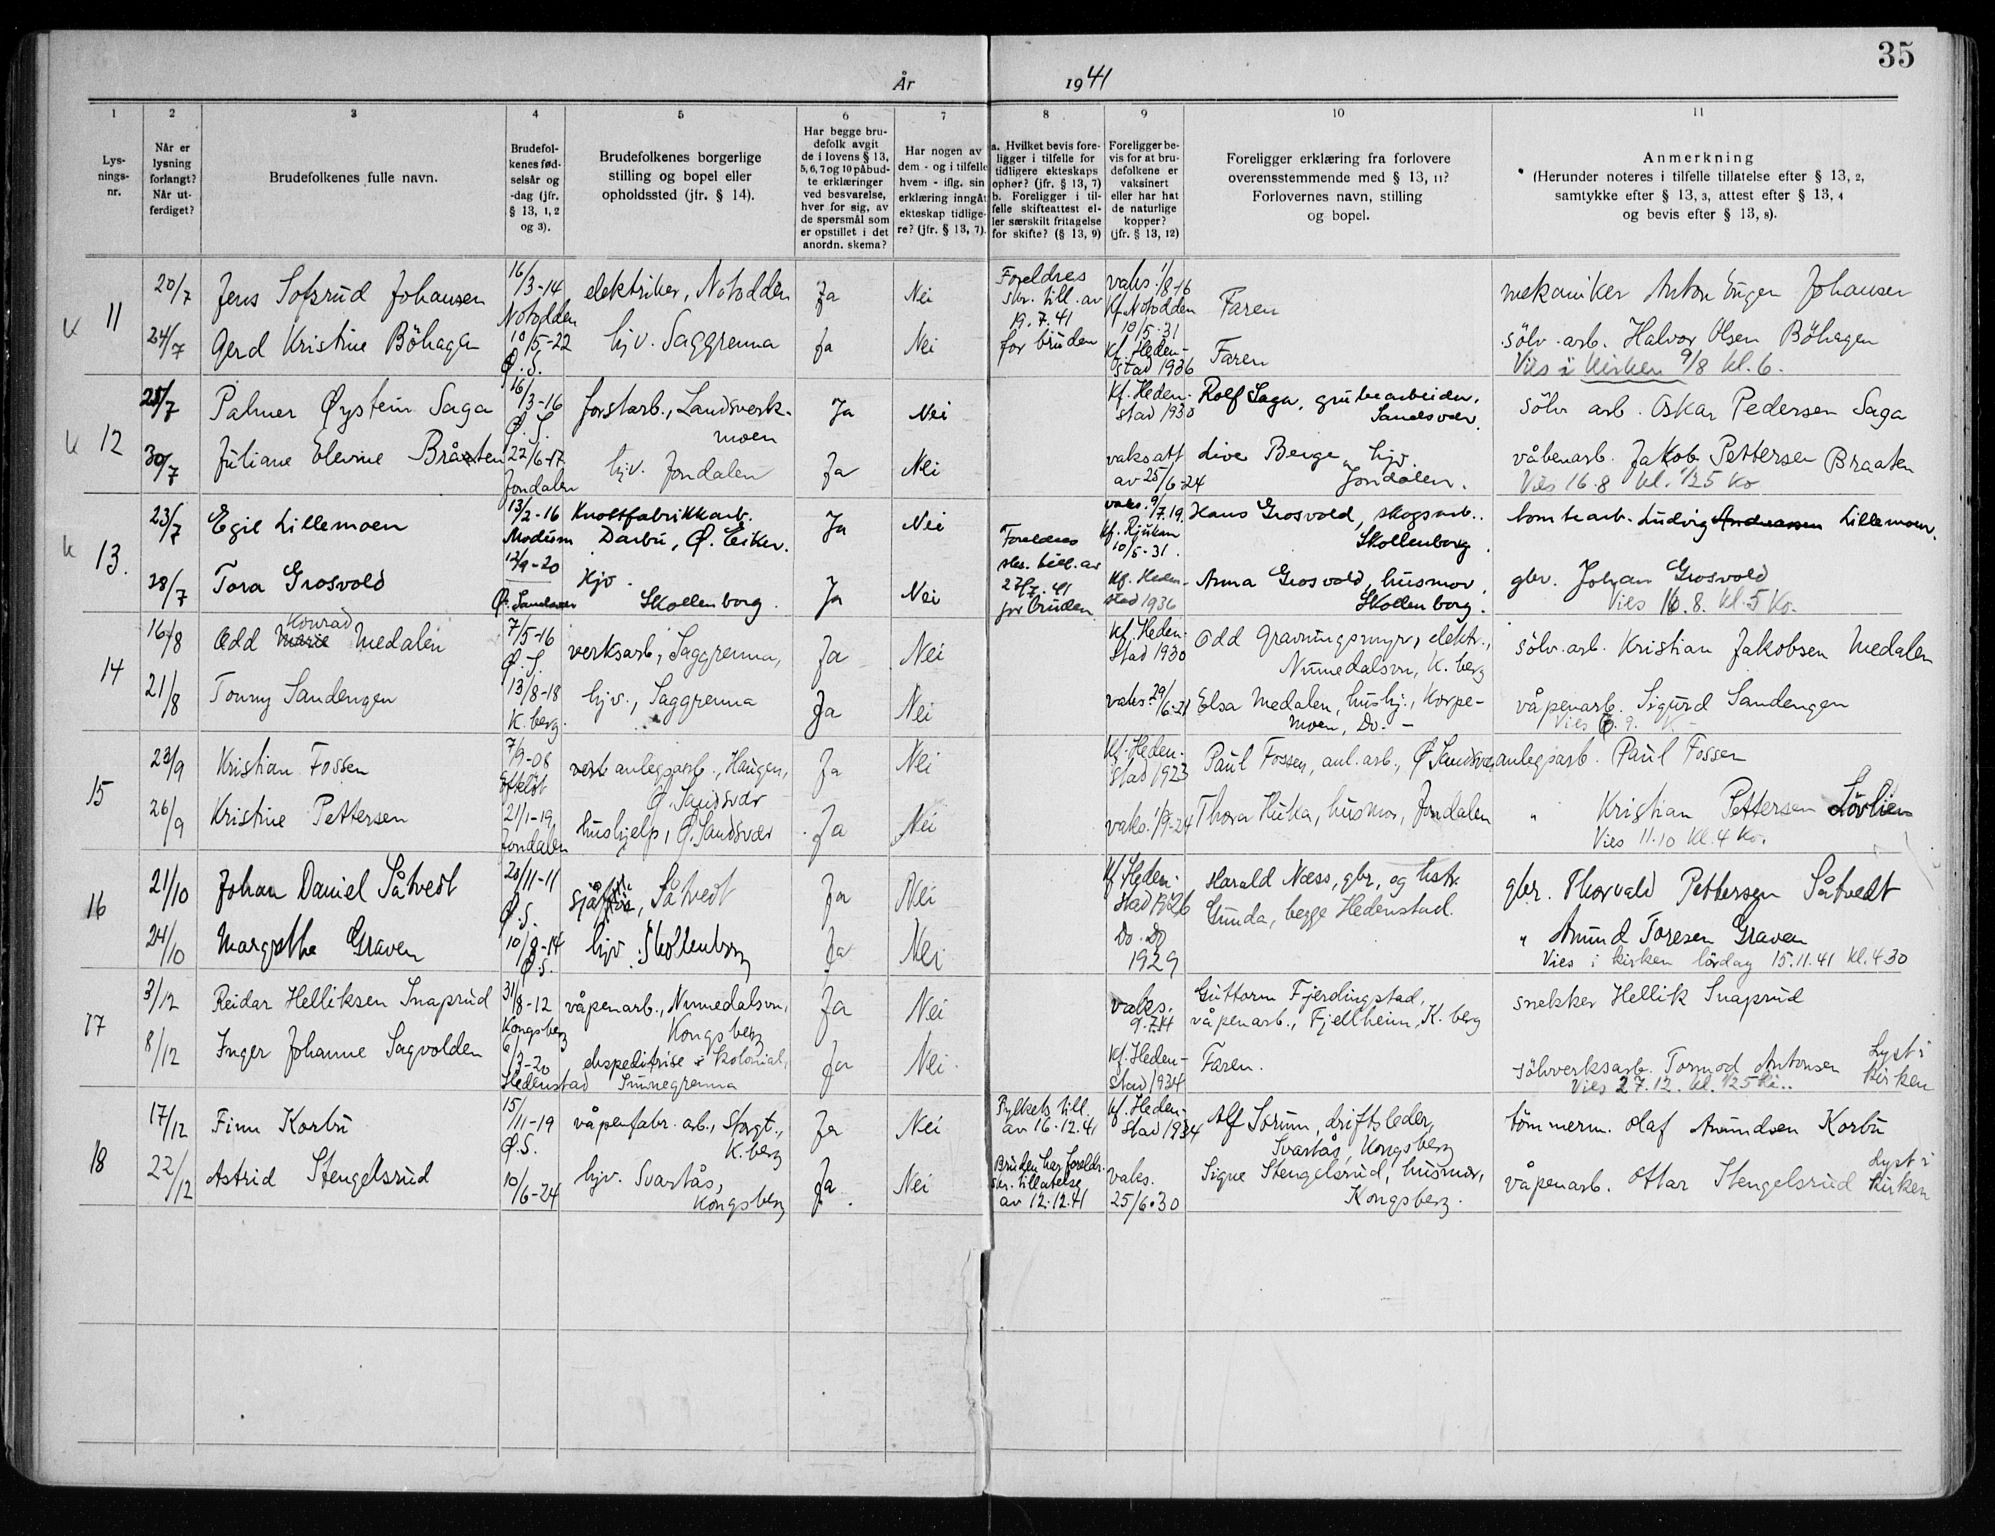 35
År 1941
1 2 3 4 5 6 7 8 9 10 11
Lysningsnr.
Når er lysning forlangt? Når utferdiget?
Brudefolkenes fulle navn.
Brudefolkenes fødselsår og -dag (jfr. § 13, 1, 2 og 3).
Brudefolkenes borgerlige stilling og bopel eller opholdssted (jfr. § 14).
Har begge brudefolk avgit de i lovens § 13, 5, 6, 7 og 10 påbudte erklæringer ved besvarelse, hver for sig, av de spørsmål som er opstillet i det anordn. skema?
Har nogen av dem - og i tilfelle hvem - iflg. sin erklæring inngåt ekteskap tidligere? (jfr. § 13, 7).
a. Hvilket bevis foreligger i tilfelle for tidligere ekteskaps ophør? (jfr. § 13, 7) b. Foreligger i tilfelle skifteattest eller særskilt fritagelse for skifte? (§ 13, 9)
Foreligger bevis for at brudefolkene er vaksinert eller har hat de naturlige kopper? (jfr. § 13, 12)
Foreligger erklæring fra forlovere overensstemmende med § 13, 11? Forlovernes navn, stilling og bopel.
Anmerkning (Herunder noteres i tilfelle tillatelse efter § 13, 2, samtykke efter § 13, 3, attest efter § 13, 4 og bevis efter § 13, 8).
K 11
20/7 Jens Sofsrud Johansen 16/3-14 Notodden elektriker, Notodden Ja Nei Foreldres skr. till. av 19.7.41 for bruden vaks. 1/8-16 Kf. Notodden 10/5.31 Faren mekaniker Anton Inger Johansen
24/7 Gerd Kristine Böhaga 10/5-22 Ø.S. hjv. Saggrenna Ja Nei Kf. Hedenstad 1936 Faren sölv.arb. Halvor Olsen Böhagen
Vies i kirken 9/8 kl. 6.
K 12
25/7 Palmer Øystein Saga 16/3-16 Ø.S. forstarb., Landsverkmoen Ja Nei Kf. Hedenstad 1930 Rolf Saga, grubearbeider, Sandsvær. sölv arb. Oskar Pedersen Saga
30/7 Juliane Elevine Bråten 22/6-17 Jondalen hjv. Jondalen Ja Nei vaksatt av 25/6-24 Live Berge, hjv. Jondalen. våbenarb. Jakob Pettersen Braaten
Vies 16.8 kl. 1/2 5 Ko
K 13.
23/7 Egil Lillemoen 13/2-16 Modum Knottfabrikkarb. Darbu, Ø. Eiker. Ja Nei vaks. 9/7.19. Kf. Rjukan 10/5-31. Hans Grosvold, skogsarb. Skollenborg. tomtearb. Ludvig Andreassen Lillemoen.
28/7 Tora Grosvold 12/9-20 Ø. Sandsvær Hjv. Skollenborg. Ja Nei Foreldres skr. till. av 23/7.41 for bruden Kf. Hedenstad 1936 Anna Grosvold, husmor, Skollenborg. gbr. Johan Grosvold
Vies 16.8. kl. 5 Ko.
14
16/8 Odd Marie Konrad Medalen 7/5-16 Ø.S. verksarb., Saggrenna, Ja Nei Kf. Hedenstad 1930 Odd Gravningsmyr, elektr., Numedalsvn, K.berg sölv.arb. Kristian Jakobsen Medalen
21/8 Tonny Sandengen 13/8-18 K.berg. hjv., Saggrenna Ja Nei vaks. 29/6-21 Elsa Medalen, hushj., Korpemoen, Do. - våpenarb. Sigurd Sandengen
Vies 6.9. K
15
23/9 Kristian Fossen 7/9-08 Efteløt anlegsarb., Haugen, Ø. Sandsvær Ja Nei Kf. Hedenstad 1923 Paul Fossen, anl.arb., Ø Sandsvær anlegsarb. Paul Fossen
26/9 Kristine Pettersen 21/1-19 Jondalen hushjelp, Ø. Sandsvær Ja Nei vaks. 1/9-24 Thora Huka, husmor, Jondalen " Kristian Pettersen Lövlien
Vies 11.10 kl. 4 Ko.
16
21/10 Johan Daniel Såtvedt 20/11-11 Ø.S. sjåfför, Såtvedt Ja Nei Kf. Hedenstad 1926 Harald Næss, gbr, og hstr. Gunda, begge Hedenstad. gbr. Thorvald Pettersen Såtvedt
24/10 Margrethe Graven 10/8-14 Ø.S. hjv. Skollenborg Ja Nei Do. Do 1929 " Amund Toresen Graven
Vies i kirken lördag 15.11.41 kl. 4.30
17
3/12 Reidar Helliksen Snaprud 31/8-12 Kongsberg våpenarb., Numedalsvn, Kongsberg Ja Nei vaks. 9.7.14 Guttorm Fjerdingstad, våpenarb., Fjellheim, K.berg snekker Hellik Snaprud
8/12 Inger Johanne Sagvolden 6/3-20 Hedenstad ekspeditrise i kolonial, Sinnegrenna Ja Nei. Kf. Hedenstad 1934 Faren. sölvverksarb. Tormod Antonsen Lyst i kirken
Vies 27.12. kl. 1/2 5 Ki..
18
17/12 Finn Korbu 15/11-19 Ø.S. våpenfabr. arb., Storgt., K.berg Ja Nei Fylkets till. av 16.12.41 Kf. Hedenstad 1934 Alf Sorum, driftsleder, Svartås, Kongsberg tömmerm. Olaf Amundsen Korbu
22/12 Astrid Stengelsrud 10/6-24 hjv. Svartås, Kongsberg Ja. Nei Bruden har foreldr. skr. tillatelse av 12.12.41 vaks. 25/6.30 Signe Stengelsrud, husmor, Kongsberg. våpenarb. Ottar Stengelsrud Lyst i kirken